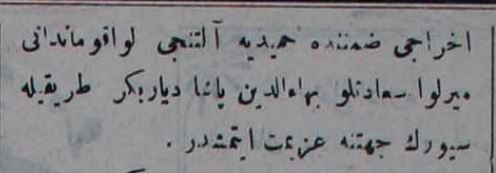 اخراجی ضمننده حمیدیه آلتنجی لواقوماندانی
میرلوا سعادتلو بهاءالدین پاشا دیاربکر طریقیله
سیورك جهتنه عزیمت ایتمشدر .